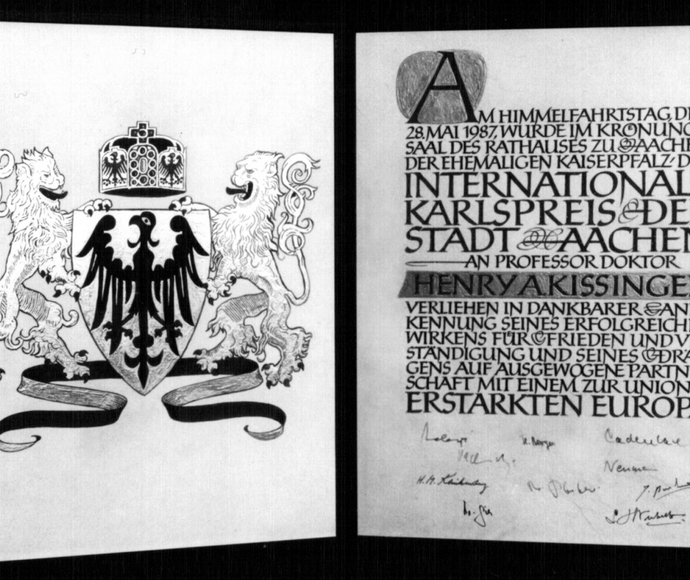 AM HIMMELFAHRTSTAG, DE
28. MAI 1987, WURDE IM KRÖNUNG
SAAL DES RATHAUSES ZU AACHE
DER EHEMALIGEN KAISERPFALZ, D
INTERNATIONAL
KARLSPREIS DE
STADT AACHEN
AN PROFESSOR DOKTOR
HENRY A KISSINGE
VERLIEHEN IN DANKBARER AN
KENNUNG SEINES ERFOLGREICH
WIRKENS FÜR FRIEDEN UND V
STÄNDIGUNG UND SEINES DRÄ
GENS AUF AUSGEWOGENE PARTN
SCHAFT MIT EINEM ZUR UNION
ERSTARKTEN EUROPA